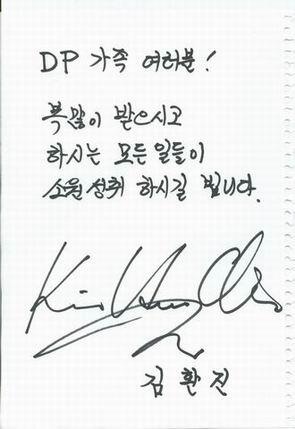 DP 가족 여러분!
복많이 받으시고
하시는 모든일들이
소원성취 하시길 빕니다.
김환진